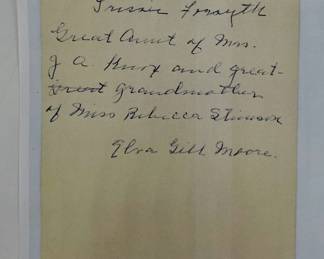 Forsyth
Great Aunt of Mrs.
J. A. Knox and great-
great grandmother
of Miss Rebecca Stinson
Elva Gill Moore.